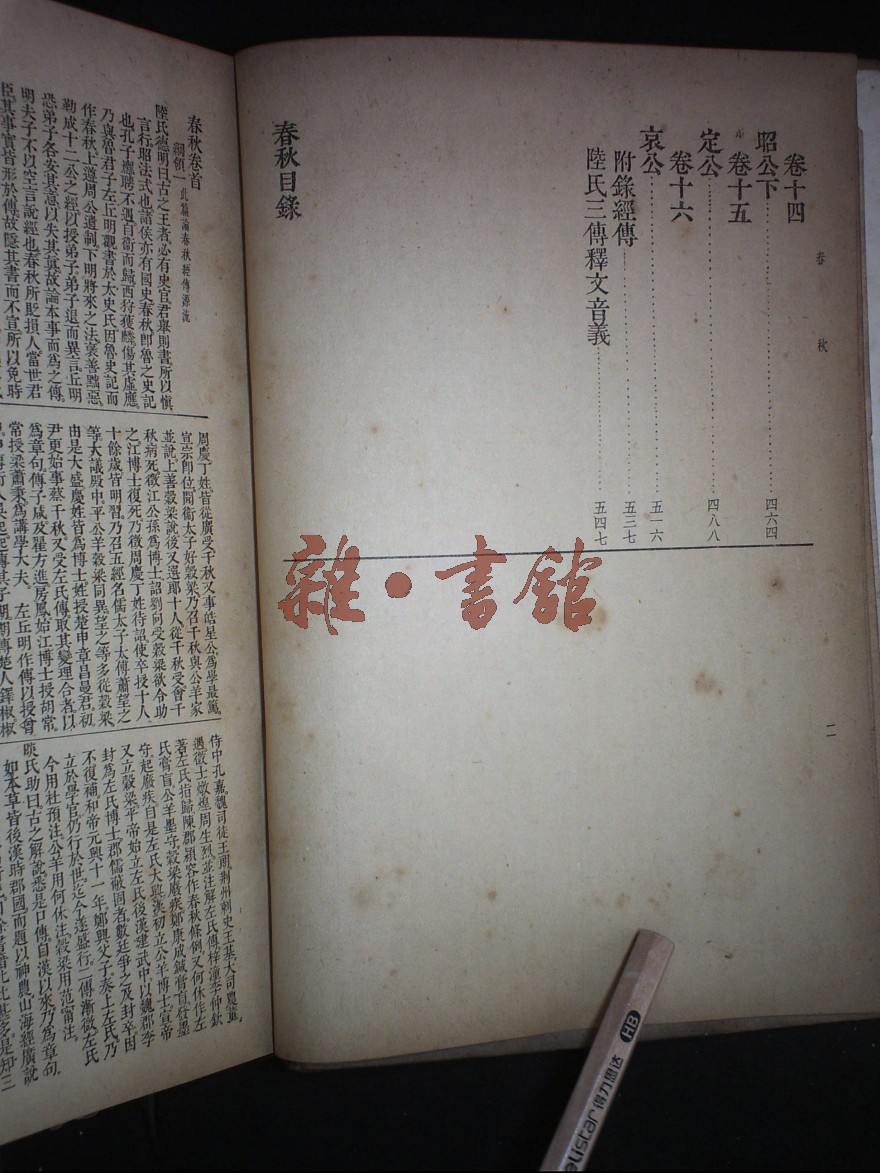 春秋
卷十四
昭公下 四六四
卷十五
定公 四八八
卷十六
哀公 五一六
附錄經傳 五三七
陸氏三傳釋文音義 五四七
春秋目錄
二
雜·書館
春秋卷首
綱領一 此篇論春秋經傳源流
陸氏德明曰古之王者必有史官君舉則書所以慎
言行昭法式也諸侯亦有國史春秋即魯之史記
也孔子應聘不遇自衛而歸西狩獲麟傷其虛應
乃與魯君子左丘明觀書於太史氏因魯史記而
作春秋上遵周公遺制下明將來之法褒善黜惡
勒成十二公之經以授弟子弟子退而異言丘明
恐弟子各安其意以失其真故論本事而為之傳
明夫子不以空言說經也春秋所貶損人當世君
臣其事實皆形於傳故隱其書而不宣所以免時
周慶丁姓皆從廣受千秋又事皓星公為學最篤
宣帝即位聞衛太子好穀梁乃召千秋與公羊家
並說上善穀梁說後又選郎十人從千秋受會千
秋病死徵江公孫為博士詔劉向受穀梁欲令助
之江博士復死乃徵周慶丁姓待詔使卒授十人
十餘歲皆明習乃召五經名儒太子太傅蕭望之
等大議殿中平公羊穀梁同異望之等多從穀梁
由是大盛慶姓皆為博士姓授楚申章昌曼君初
尹更始事蔡千秋又受左氏傳取其變理合者以
為章句傳子咸及翟方進房鳳始江博士授胡常
常授梁蕭秉為講學大夫 左丘明作傳以授曾
侍中孔嘉魏司徒王朗荊州刺史王基大司農董
遇徵士燉煌周生烈並注解左氏傳梓潼李仲欽
著左氏指歸陳郡潁容作春秋條例又何休作左
氏膏肓公羊墨守穀梁廢疾鄭康成鍼膏肓發墨
守起廢疾自是左氏大興漢初立公羊博士宣帝
又立穀梁平帝始立左氏後漢建武中以魏郡李
封為左氏博士群儒蔽固者數廷爭之及封卒因
不復補和帝元興十一年鄭興父子奏上左氏乃
立於學官仍行於世迄今遂盛行二傳漸微左氏
今用杜預注公羊用何休注穀梁用范甯注
啖氏助曰古之解說悉是口傳自漢以來乃為章句
如本草皆後漢時郡國而題以神農山海經廣說
HB
得力思达
elistar